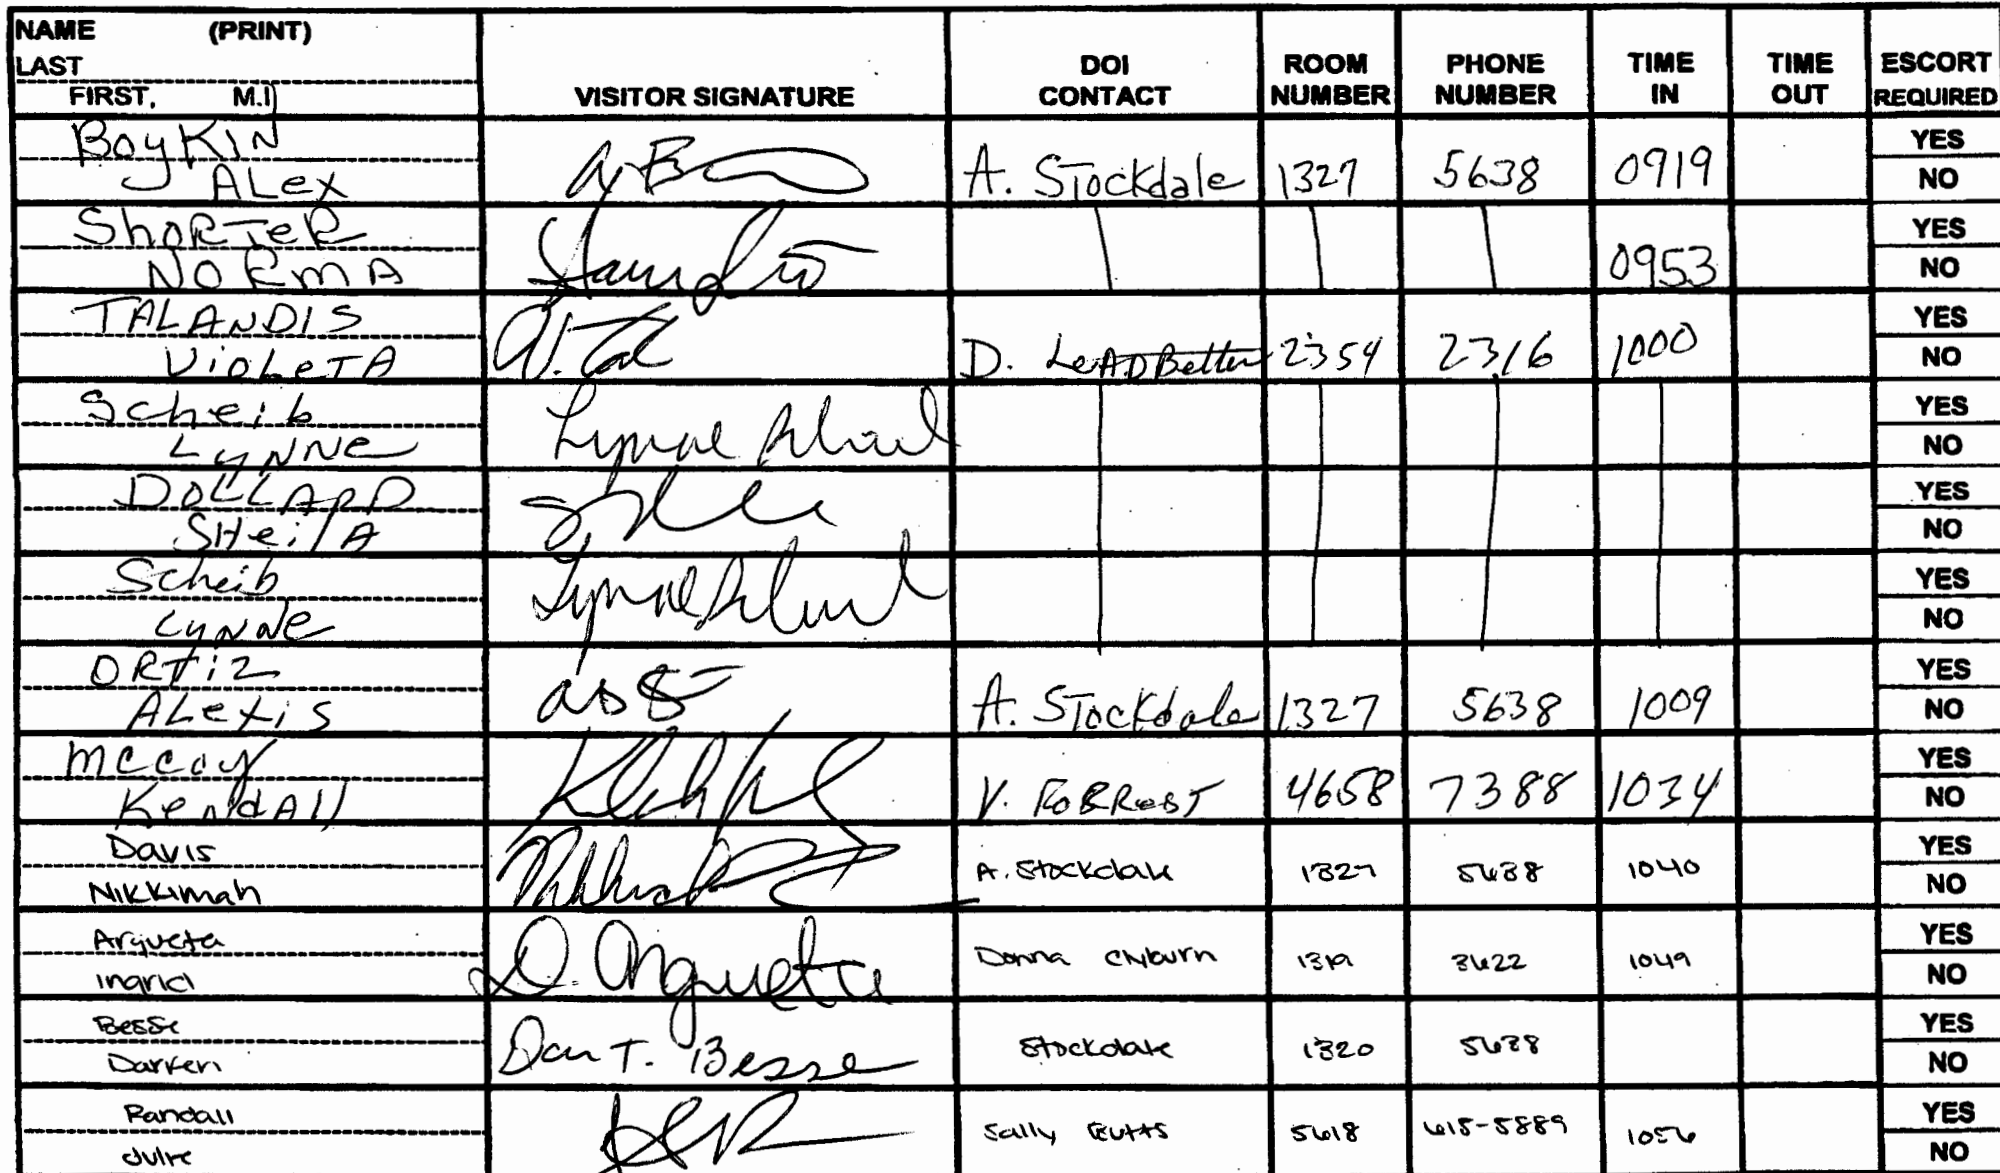 NAME (PRINT)
LAST
FIRST, M.I
VISITOR SIGNATURE
DOI CONTACT
ROOM NUMBER
PHONE NUMBER
TIME IN
TIME OUT
ESCORT REQUIRED
BoyKIN
ALex
A. STockdale 1327 5638 0919
YES
NO
ShoRTeR
NORMA
0953
YES
NO
TALANDIS
VioLeTA
D. LeADBetter 2354 2316 1000
YES
NO
Scheib
LyNNe
Lynne
YES
NO
DOLLARD
SHeilA
YES
NO
Scheib
LyNNe
Lynne
YES
NO
ORTiz
ALexis
A. STockdale 1327 5638 1009
YES
NO
mccoy
KendAll
V. FoRResT 4658 7388 1034
YES
NO
Davis
Nikkimah
A. Stockdale 1327 5638 1040
YES
NO
Argueta
Ingrid
Argueta
Donna Clyburn 1319 3622 1049
YES
NO
Besse
Darren
Dan T. Besse
Stockdale 1320 5638
YES
NO
Randall
Julie
Sally Butts 5618 615-5889 1056
YES
NO